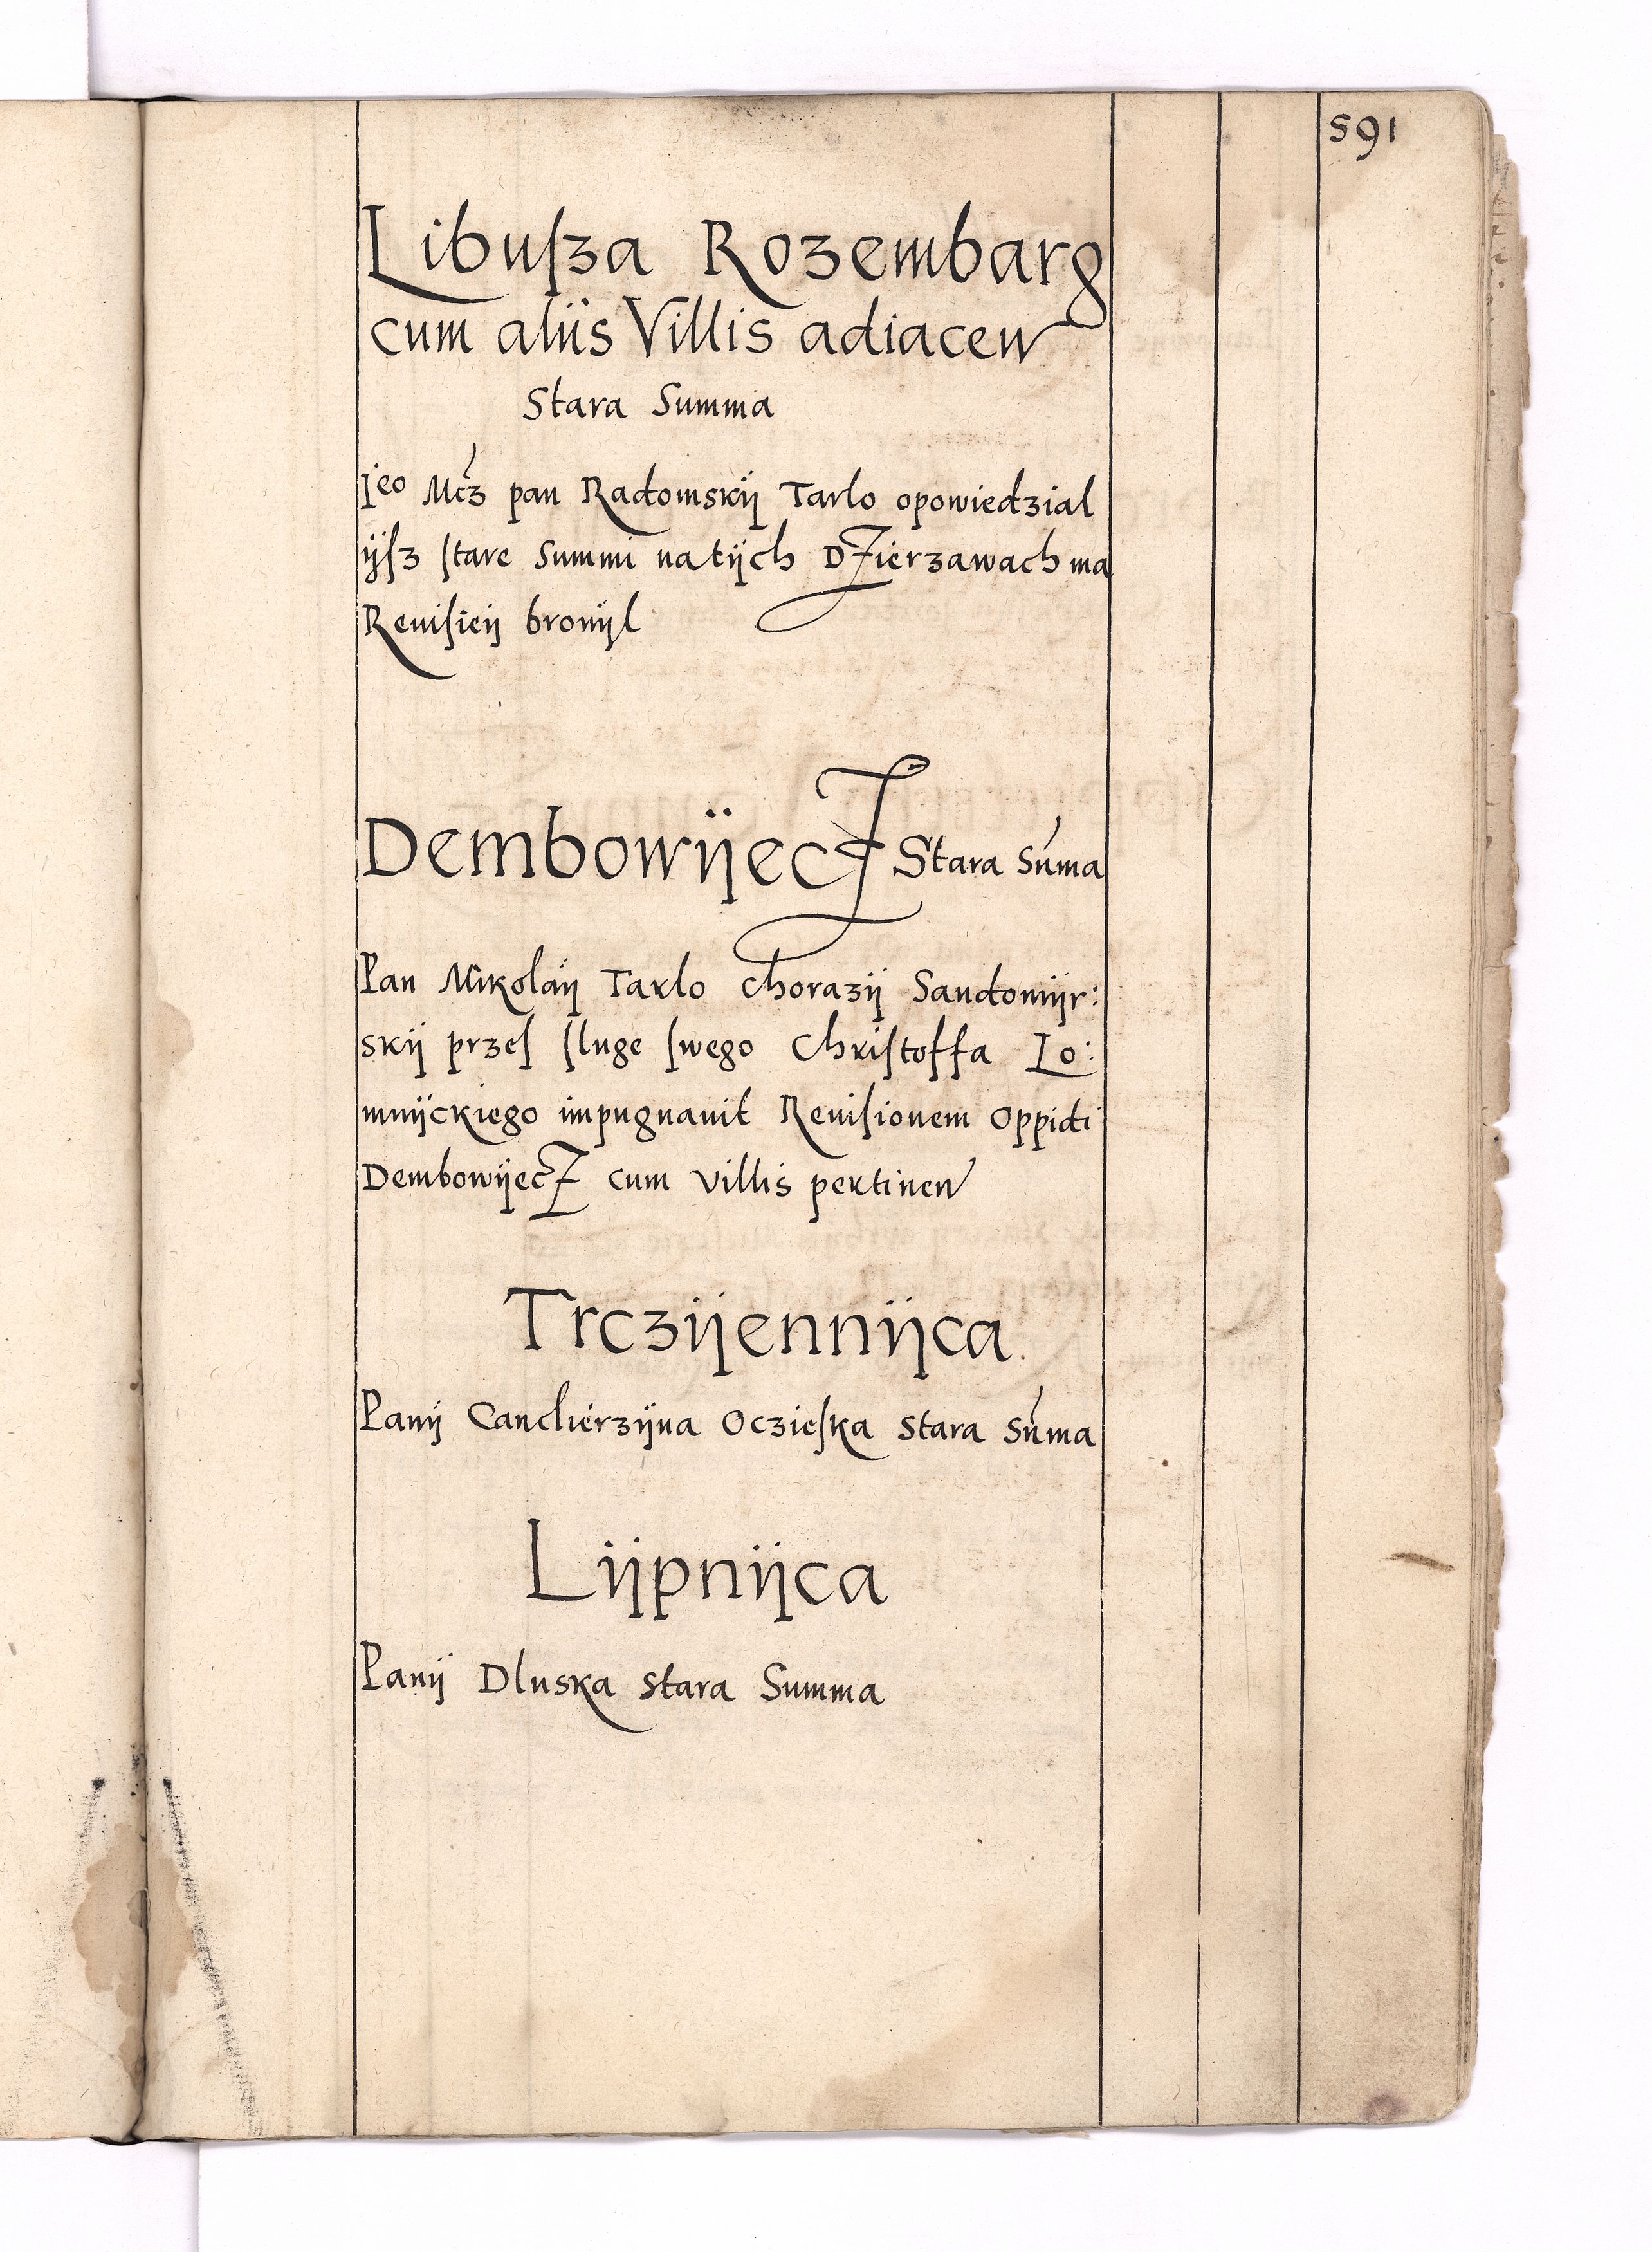 591
Libuſza Rozembarg
cum aliis Villis adiacen
Stara Summa
Jeo Mcz pan Radomskij Tarlo opowiedzial
ijſz ſtare Summi na tijch Dzierzawach ma
Reuiſieij bronijl
Dembowijecz Stara Suma
Pan Mikolaij Tarlo chorazij Sandomijr:
skij przeſ ſluge ſwego Chriſtoffa Lo:
mnijckiego impugnauit Reuiſionem Oppidi
Dembowijecz cum villis pertinen
Trczijennijca
Panij Canclierzijna Oczieſka Stara Suma
Lijpnijca
Panij Dluska Stara Summa